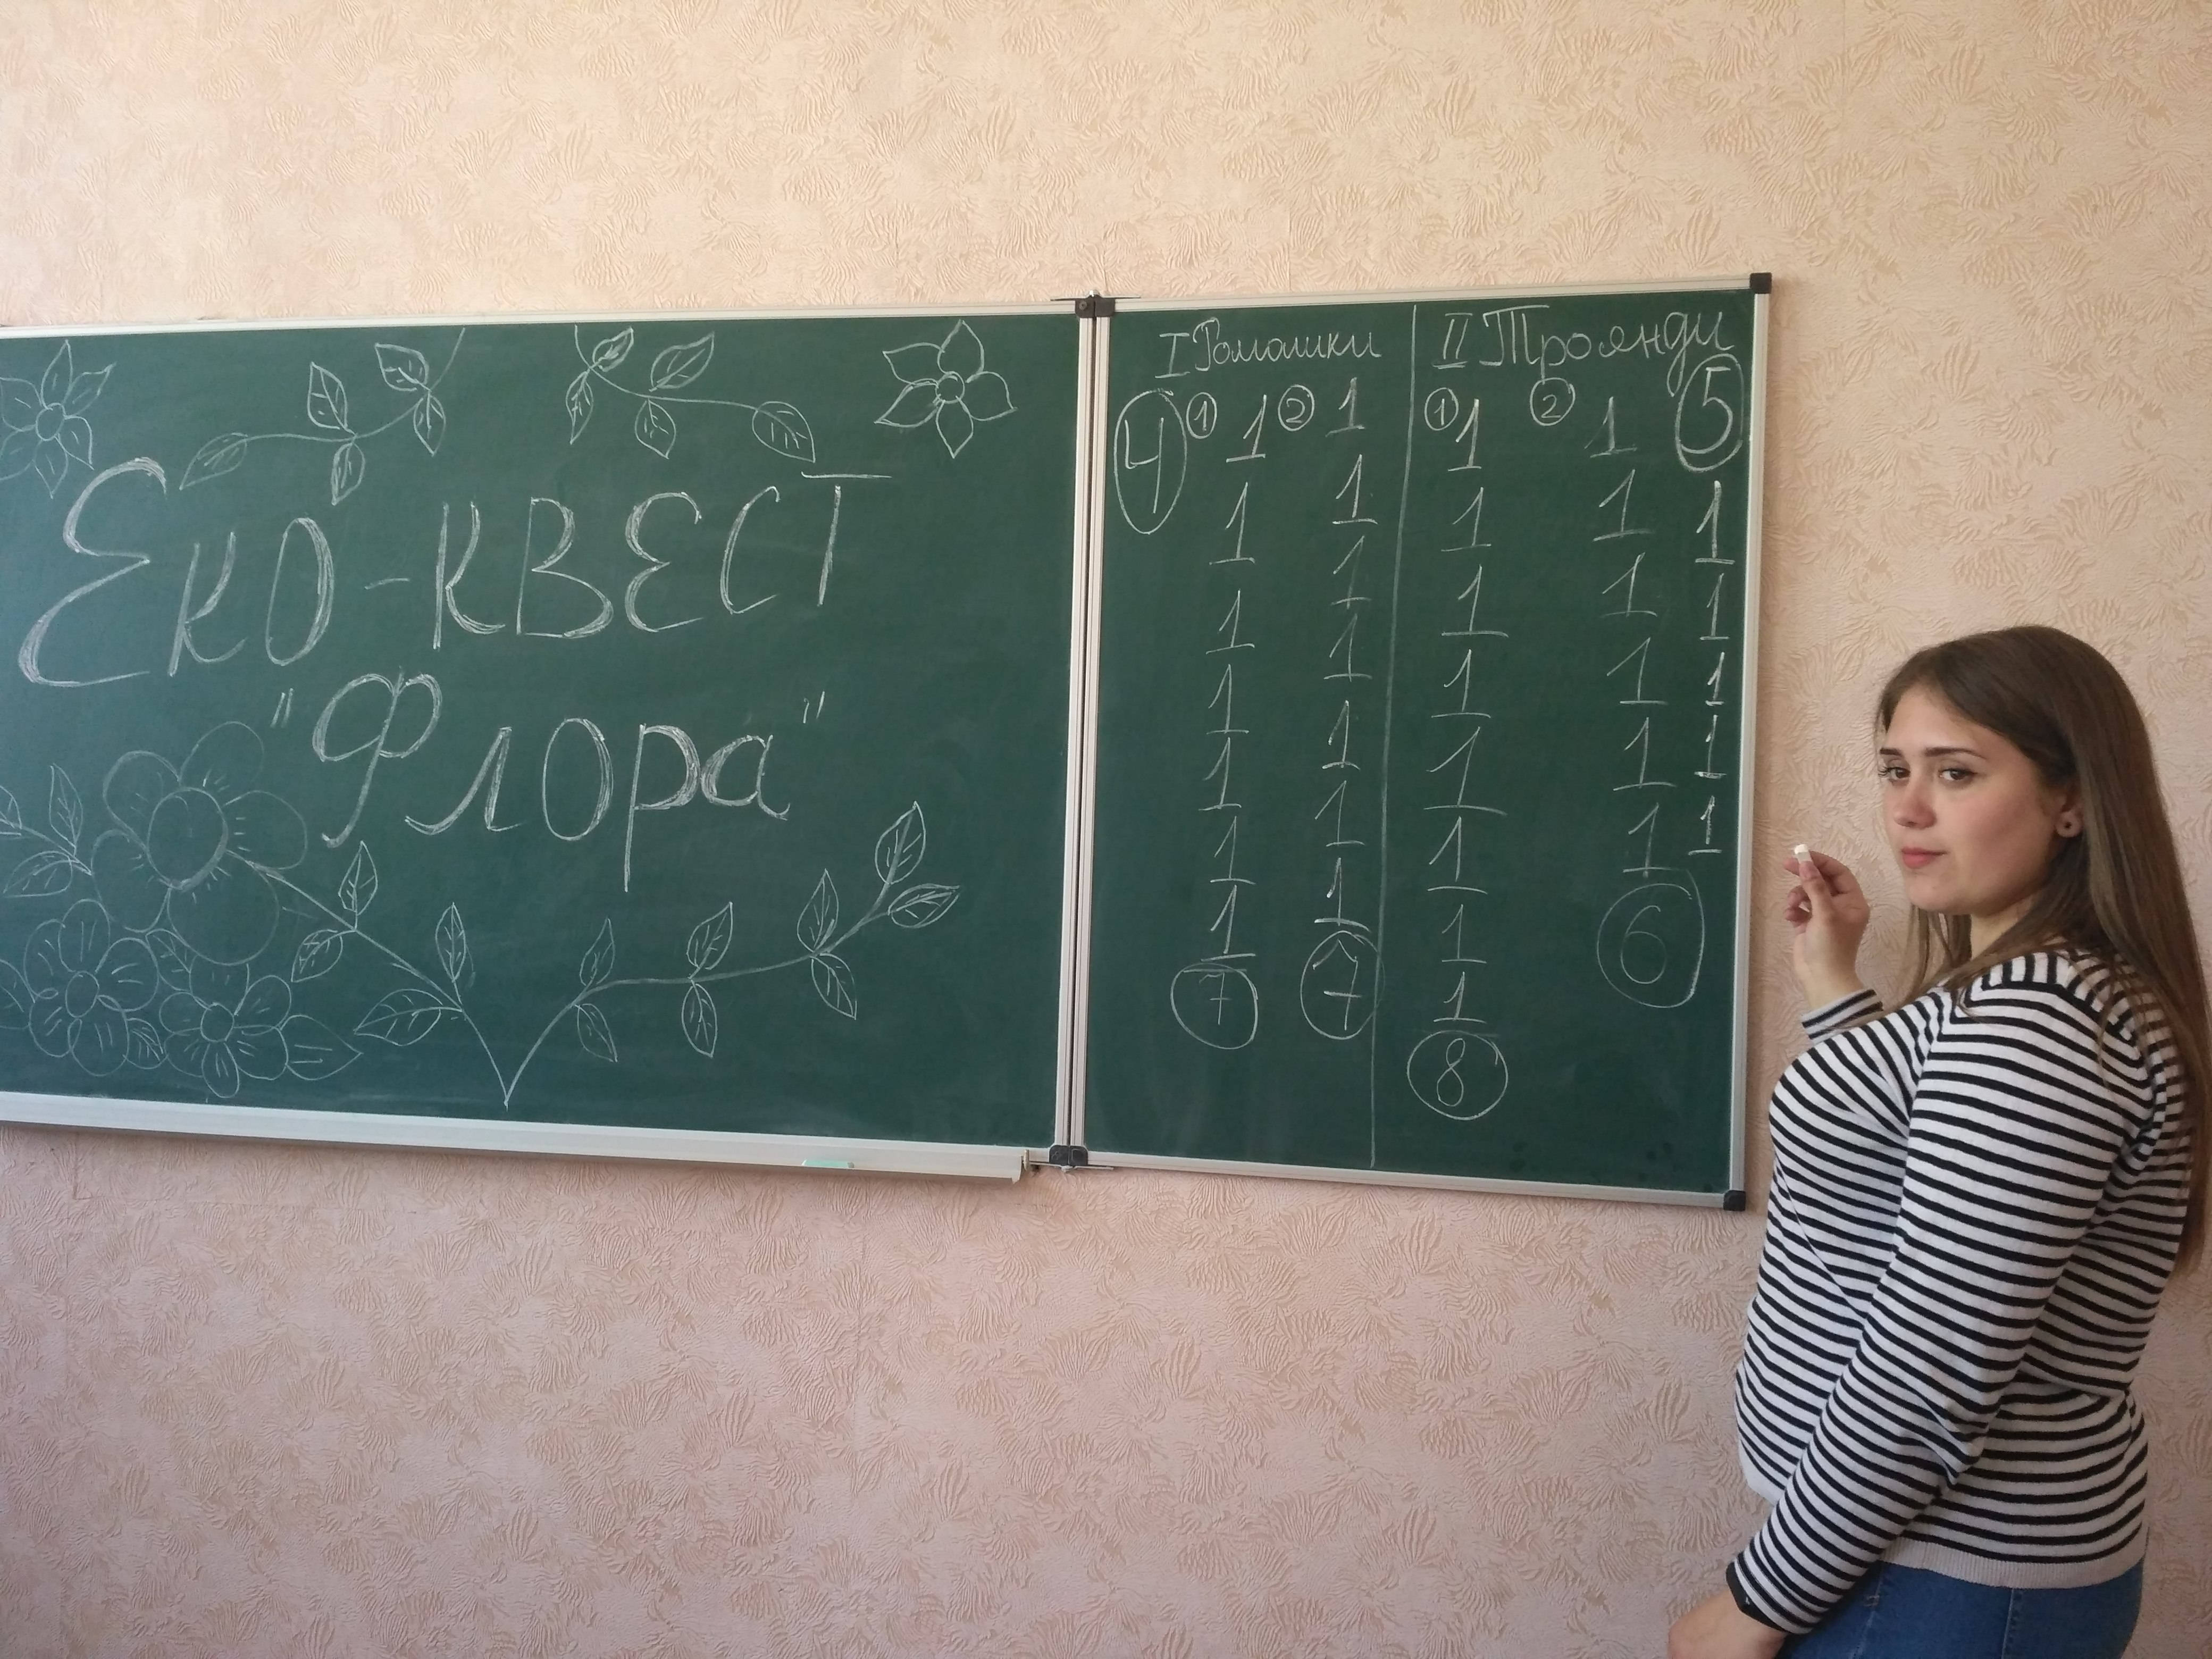 Еко-квест
"Флора"
I Ромашки II Троянди
4 ① 1 ② 1 ① 1 ② 1 5
1 1 1 1 1
1 1 1 1 1
1 1 1 1 1
1 1 1 1 1
1 1 1 1 1
1 1 1 6
7 7 1
8